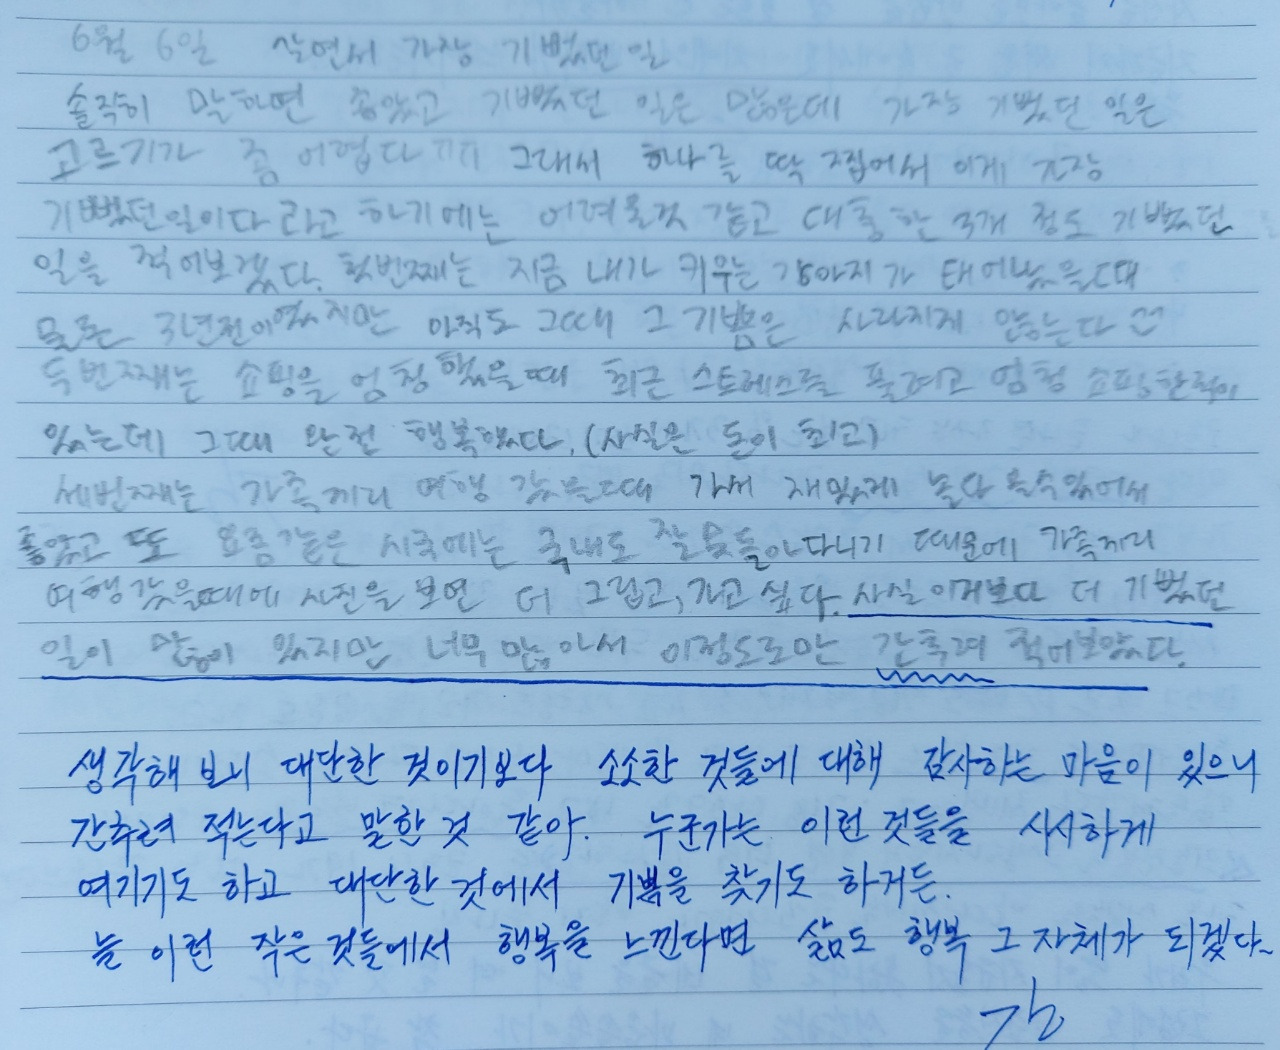 6월 6일 살면서 가장 기뻤던 일
솔직히 말하면 좋았고 기뻤던 일은 많은데 가장 기뻤던 일은
고르기가 좀 어렵다 ㅠㅠ 그래서 하나를 딱 집어서 이게 가장
기뻤던일이다 라고 하기에는 어려울것 같고 대충 한 3개 정도 기뻤던
일을 적어보겠다. 첫번째는 지금 내가 키우는 강아지가 태어났을때
물론 3년전이였지만 아직도 그때 그 기쁨은 사라지지 않는다
두번째는 쇼핑을 엄청 했을때 최근 스트레스를 풀려고 엄청 쇼핑한적이
있는데 그때 완전 행복했다. (사실은 돈이 최고)
세번째는 가족끼리 여행 갔을때 가서 재밌게 놀다 올수있어서
좋았고 또 요즘같은 시국에는 국내도 잘 못돌아다니기 때문에 가족끼리
여행갔을때에 사진을 보면 더 그립고, 가고 싶다. 사실 이거보다 더 기뻤던
일이 많이 있지만 너무 많아서 이정도로만 간추려 적어보았다.
생각해 보니 대단한 것이기보다 소소한 것들에 대해 감사하는 마음이 있으니
간추려 적는다고 말한 것 같아. 누군가는 이런 것들을 시시하게
여기기도 하고 대단한 것에서 기쁨을 찾기도 하거든.
늘 이런 작은 것들에서 행복을 느낀다면 삶도 행복 그 자체가 되겠다~